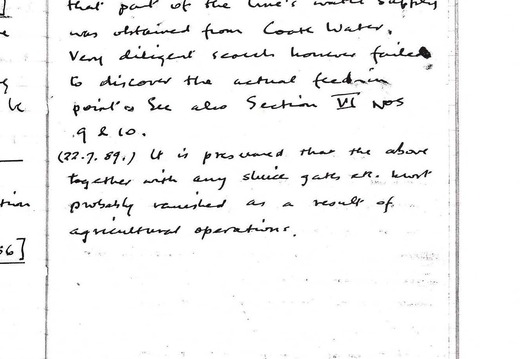 that part of the Line's water supply
was obtained from Coate Water.
Very diligent search however failed
to discover the actual feed-in
point. See also Section VI Nos
9 & 10.
(22.7.89.) It is presumed that the above
together with any sluice gates etc. must
probably vanished as a result of
agricultural operations.
tion
66]